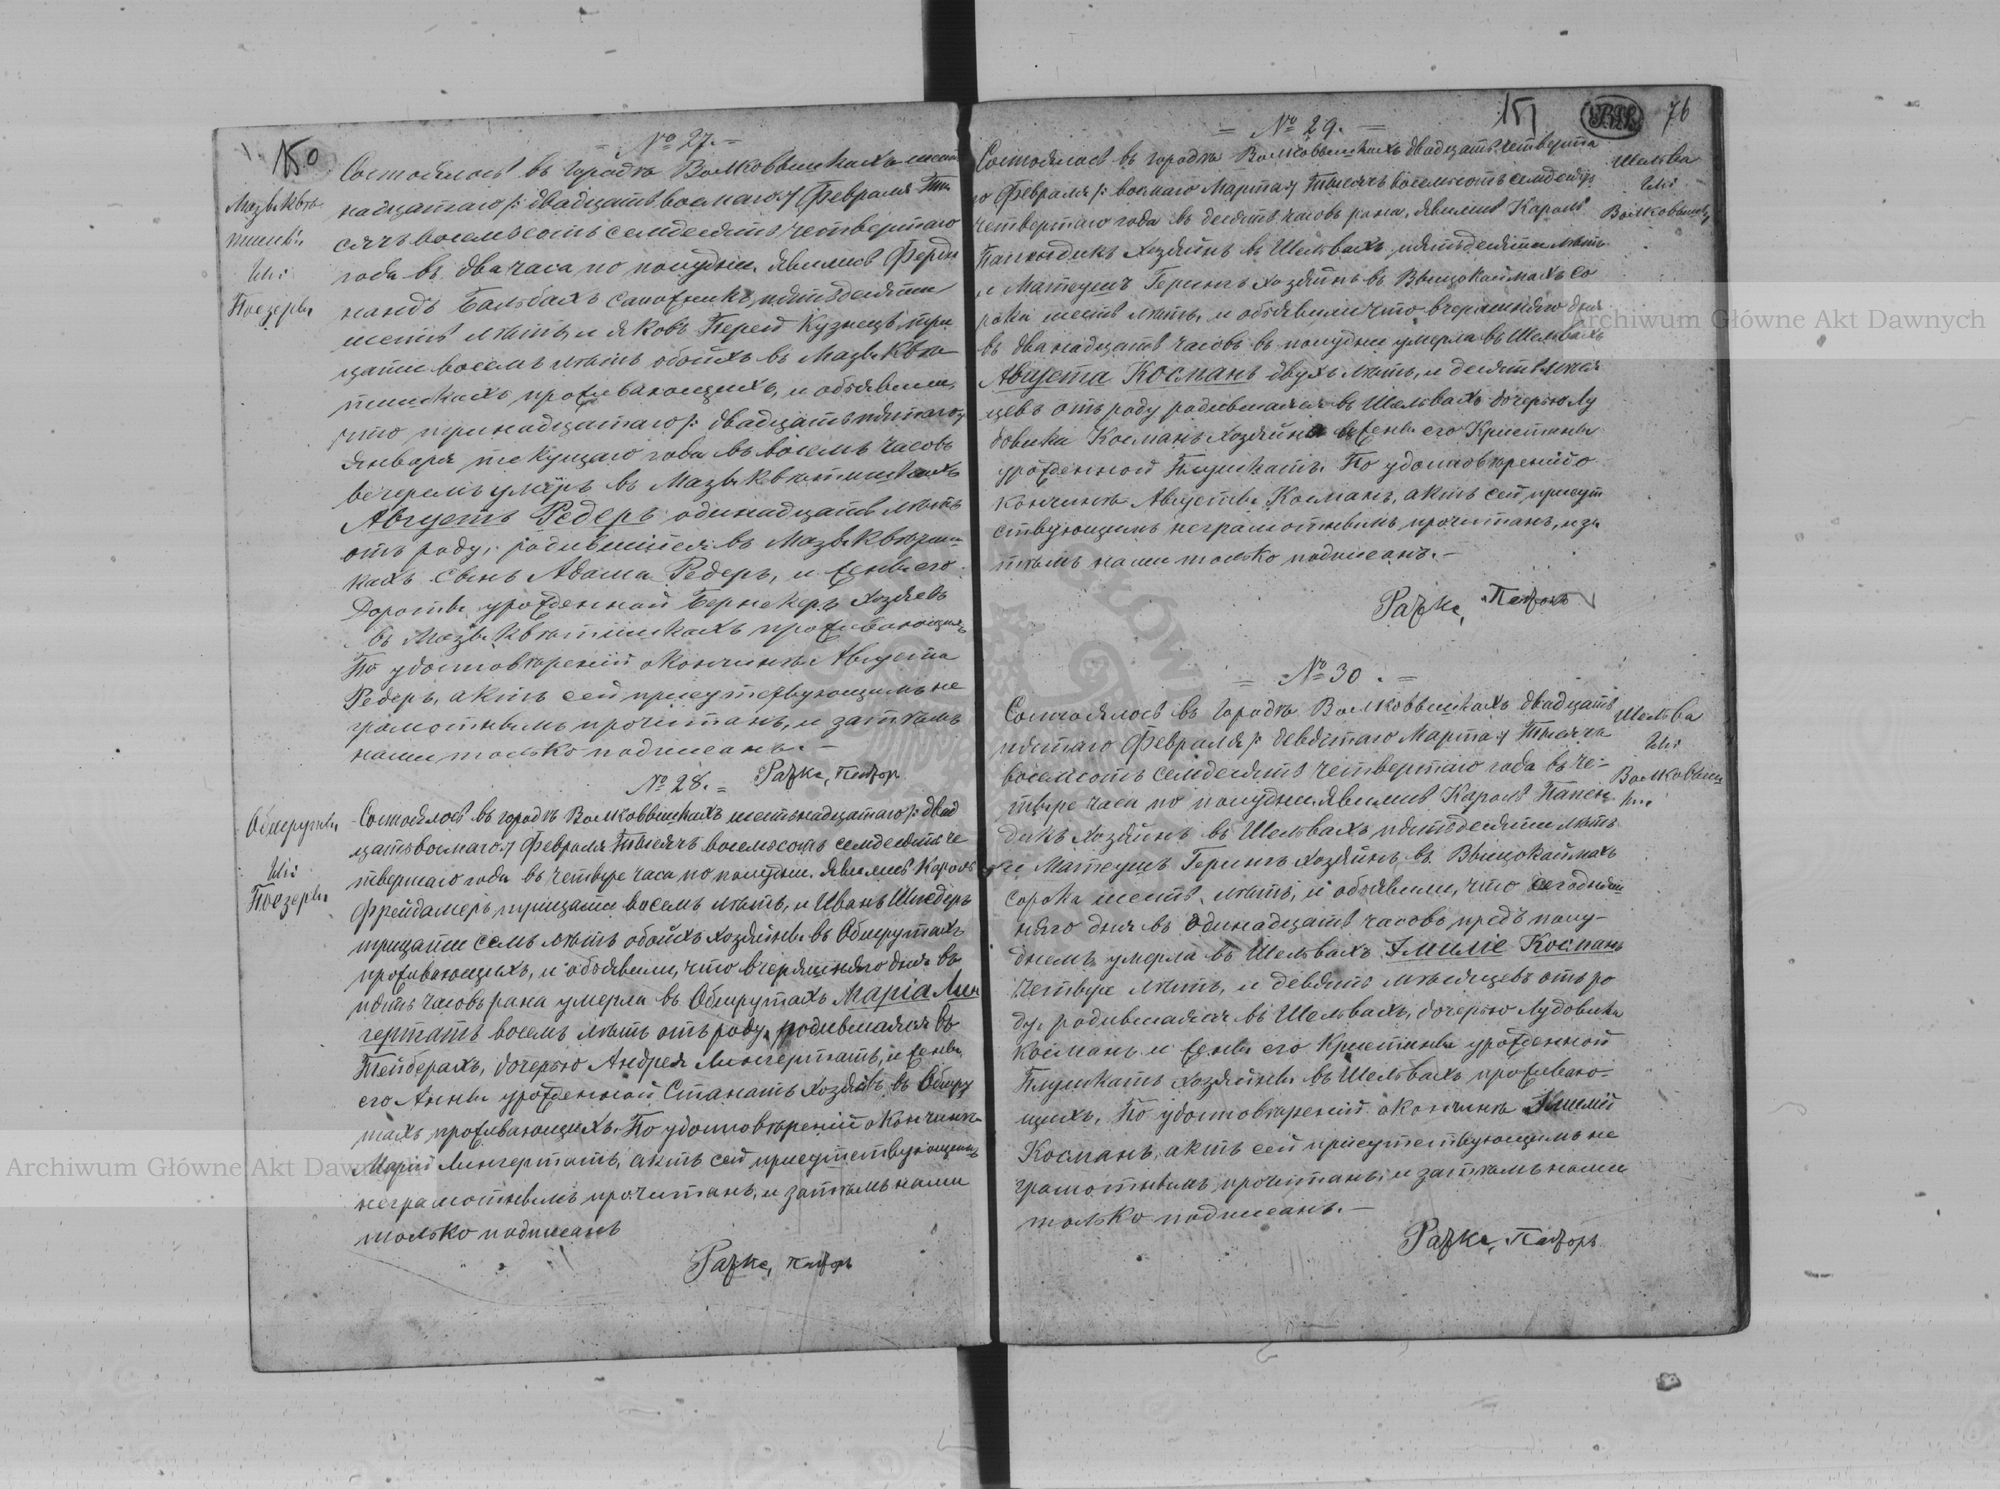 150
№ 27.
Мазые Квѣ-
тишки.
Гм:
Поезеры
Состоялось въ городѣ Волковышкахъ шест-
надцатаго /: двадцать восьмаго :/ Февраля Ты-
сяча восемьсотъ семдесятъ четвертаго
года въ два часа по полудни. Явились Ферди
нандъ Бальбахъ сапожникъ, пятьдесяти
шесть лѣтъ, и Яковъ Перей Кузнецъ, три
цати восемь лѣтъ обойхъ въ Мазые Квѣ
тишкахъ проживающихъ, и объявили,
что тринадцатаго /: двадцать пятаго :/
Января текущаго года въ восемь часовъ
вечеремъ умёръ въ Мазые Квѣтишкахъ
Августъ Редеръ одинадцать лѣтъ
отъ роду, родившійся въ Мазые Квѣтиш-
кахъ сынъ Адама Редеръ, и жены его
Доротеы урожденной Бернекеръ Хозяевъ
въ Мазые Квѣтишкахъ проживающихъ
По удостовѣреній окончины Августа
Редеръ, актъ сей присутствующимъ не
грамотнымъ прочитанъ, и затѣмъ
нами только подписанъ. —
Ражке, Пасторъ
№ 28.
Обшруты
Гм:
Поезеры
Состоялось въ городѣ Волковышкахъ шестнадцатаго /: двад
цать восмаго :/ Февраля Тысячъ восемьсотъ семдесятъ че
твертаго года въ четыре часа по полудни. Явились Кароль
Фрейдамеръ, трицати восемь лѣтъ, и Иванъ Шнедеръ
трицати семь лѣтъ обойхъ хозяйны въ Обшрутахъ
проживающихъ, и объявили, что вчерашняго дня въ
пять часовъ рана умерла въ Обшрутахъ Маріа Лин
гертатъ восемь лѣтъ отъ роду, родившаяся въ
Тейберахъ, дочерью Андрея Лингертатъ, и жены
его Анны урожденной Станатъ Хозяевъ въ Обшру
тахъ проживающихъ. По удостовѣреній окончинѣ
Маріи Лингертатъ, актъ сей присутствующимъ
неграмотнымъ прочитанъ, и затѣмъ нами
только подписанъ
Ражке, Пасторъ
151
76
№ 29.
Шельва
Гм:
Волковышк,
Состоялось въ городѣ Волковышкахъ двадцать четверта
го Февраля /: восмаго Марта :/ Тысячъ восемьсотъ семдесятъ
четвертаго года въ десять часовъ рана. Явились Кароль
Папендикъ Хозяйнъ въ Шельвахъ, пятьдесяти лѣтъ
и Матеушъ Герингъ хозяйнъ въ Вышокаймахъ со
рока шесть лѣтъ, и объявили что вчерашняго дня
въ дванадцать часовъ въ полудни умерла въ Шельвахъ
Августа Косманъ двухъ лѣтъ, и десять мѣся
цевъ отъ роду родившаяся въ Шельвахъ дочерью Лу
довика Косманъ Хозяйна и жены его Кристины
урожденной Плушкатъ. По удостовѣреній о
кончинѣ Августы Косманъ, актъ сей присут
ствующимъ неграмотнымъ прочитанъ, и за
тѣмъ нами только подписанъ. —
Ражке, Пасторъ
№ 30.
Шельва
Гм:
Волковыш
ки.
Состоялось въ городѣ Волковышкахъ двадцать
пятаго Февраля /: девятаго Марта :/ Тысяча
восемсотъ семдесятъ четвертаго года въ че-
тыре часа по полудни. Явились Кароль Папен-
дикъ хозяйнъ въ Шельвахъ пятьдесяти лѣтъ
и Матеушъ Герингъ хозяйнъ въ Вышокаймахъ
сорока шесть лѣтъ, и объявили, что сегоднѣш
няго дня въ одинадцать часовъ предъ полу-
днемъ умерла въ Шельвахъ Эмиліе Косманъ
четыре лѣтъ, и девять мѣсяцевъ отъ ро
ду, родившаяся въ Шельвахъ, дочерью Лудовика
Косманъ и жены его Кристины урожденной
Плушкатъ хозяйны въ Шельвахъ проживаю-
щихъ. По удостовѣреній окончинѣ Эмиліи
Косманъ, актъ сей присутствующимъ не
грамотнымъ прочитанъ и затѣмъ нами
только подписанъ. —
Ражке, Пасторъ
Archiwum Główne Akt Dawnych
Archiwum Główne Akt Dawnych